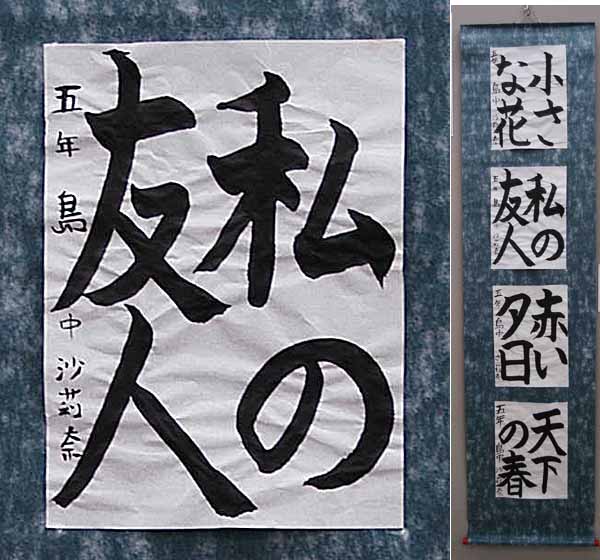 私の
友人
五年 島中 沙莉奈
小さ
な花
私の
友人
赤い
夕日
天下
の春
五年